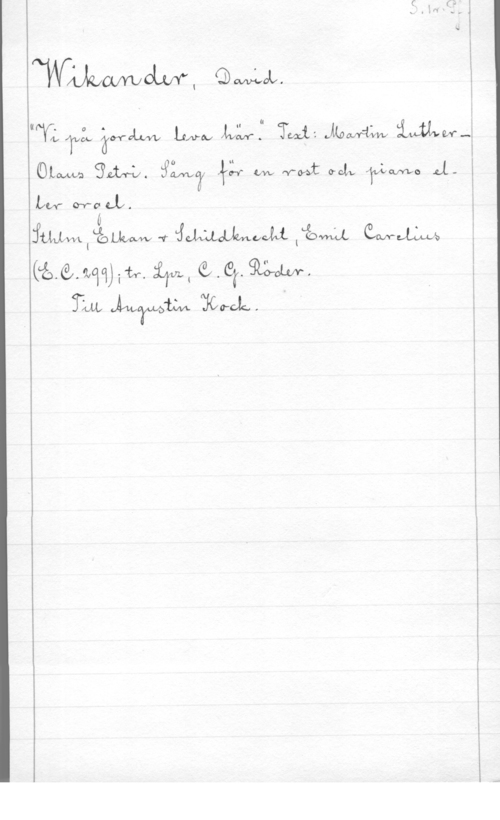 S. 1 v. Pf
Wikander, David.
"Vi på jorden leva här." Text: Martin Luther-
Olaus Petri. Sång för en röst och piano el-
ler orgel.
Sthlm, Elkan & Schildknecht, Emil Carelius
(E.C. 299); tr. Lpz, C. G. Röder.
Till Augustin Kock.